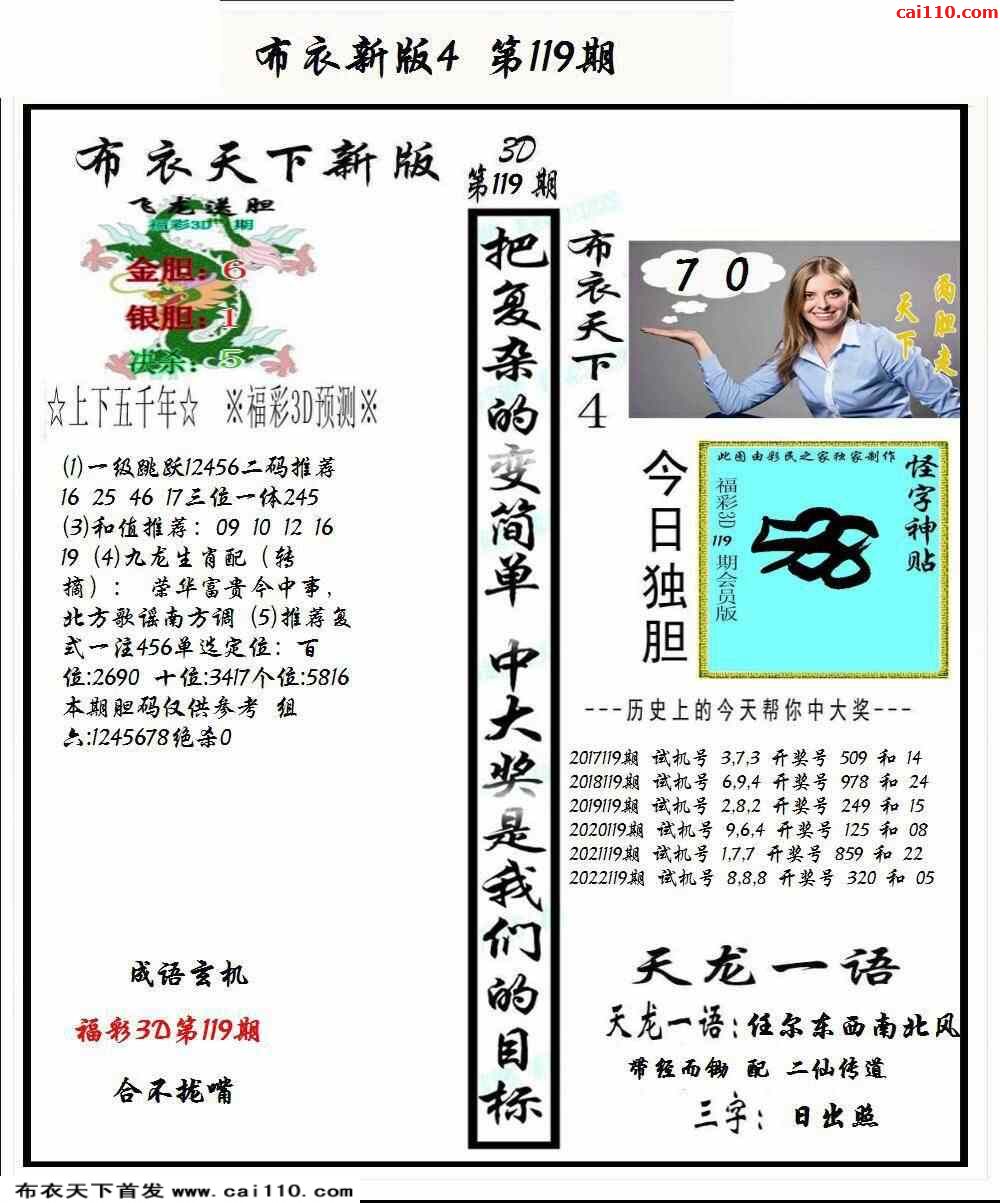 cai110.com
布衣新版4 第119期
布衣天下新版
飞龙送胆
福彩3D 期
金胆：6
银胆：1
决杀：5
☆上下五千年☆ ※福彩3D预测※
(1)一级跳跃12456二码推荐
16 25 46 17三位一体245
(3)和值推荐：09 10 12 16
19 (4)九龙生肖配（转
摘）： 荣华富贵今中事，
北方歌谣南方调 (5)推荐复
式一注456单选定位：百
位:2690 十位:3417个位:5816
本期胆码仅供参考 组
六:1245678绝杀0
成语玄机
福彩3D第119期
合不拢嘴
3D
第119期
把复杂的变简单 中大奖是我们的目标
布衣天下4
7 0
两胆走
天下
今日独胆
此图由彩民之家独家制作
怪字神贴
福彩3D 119 期会员版
---历史上的今天帮你中大奖---
2017119期 试机号 3,7,3 开奖号 509 和 14
2018119期 试机号 6,9,4 开奖号 978 和 24
2019119期 试机号 2,8,2 开奖号 249 和 15
2020119期 试机号 9,6,4 开奖号 125 和 08
2021119期 试机号 1,7,7 开奖号 859 和 22
2022119期 试机号 8,8,8 开奖号 320 和 05
天龙一语
天龙一语：任尔东西南北风
带经而锄 配 二仙传道
三字： 日出照
布衣天下首发 www.cai110.com